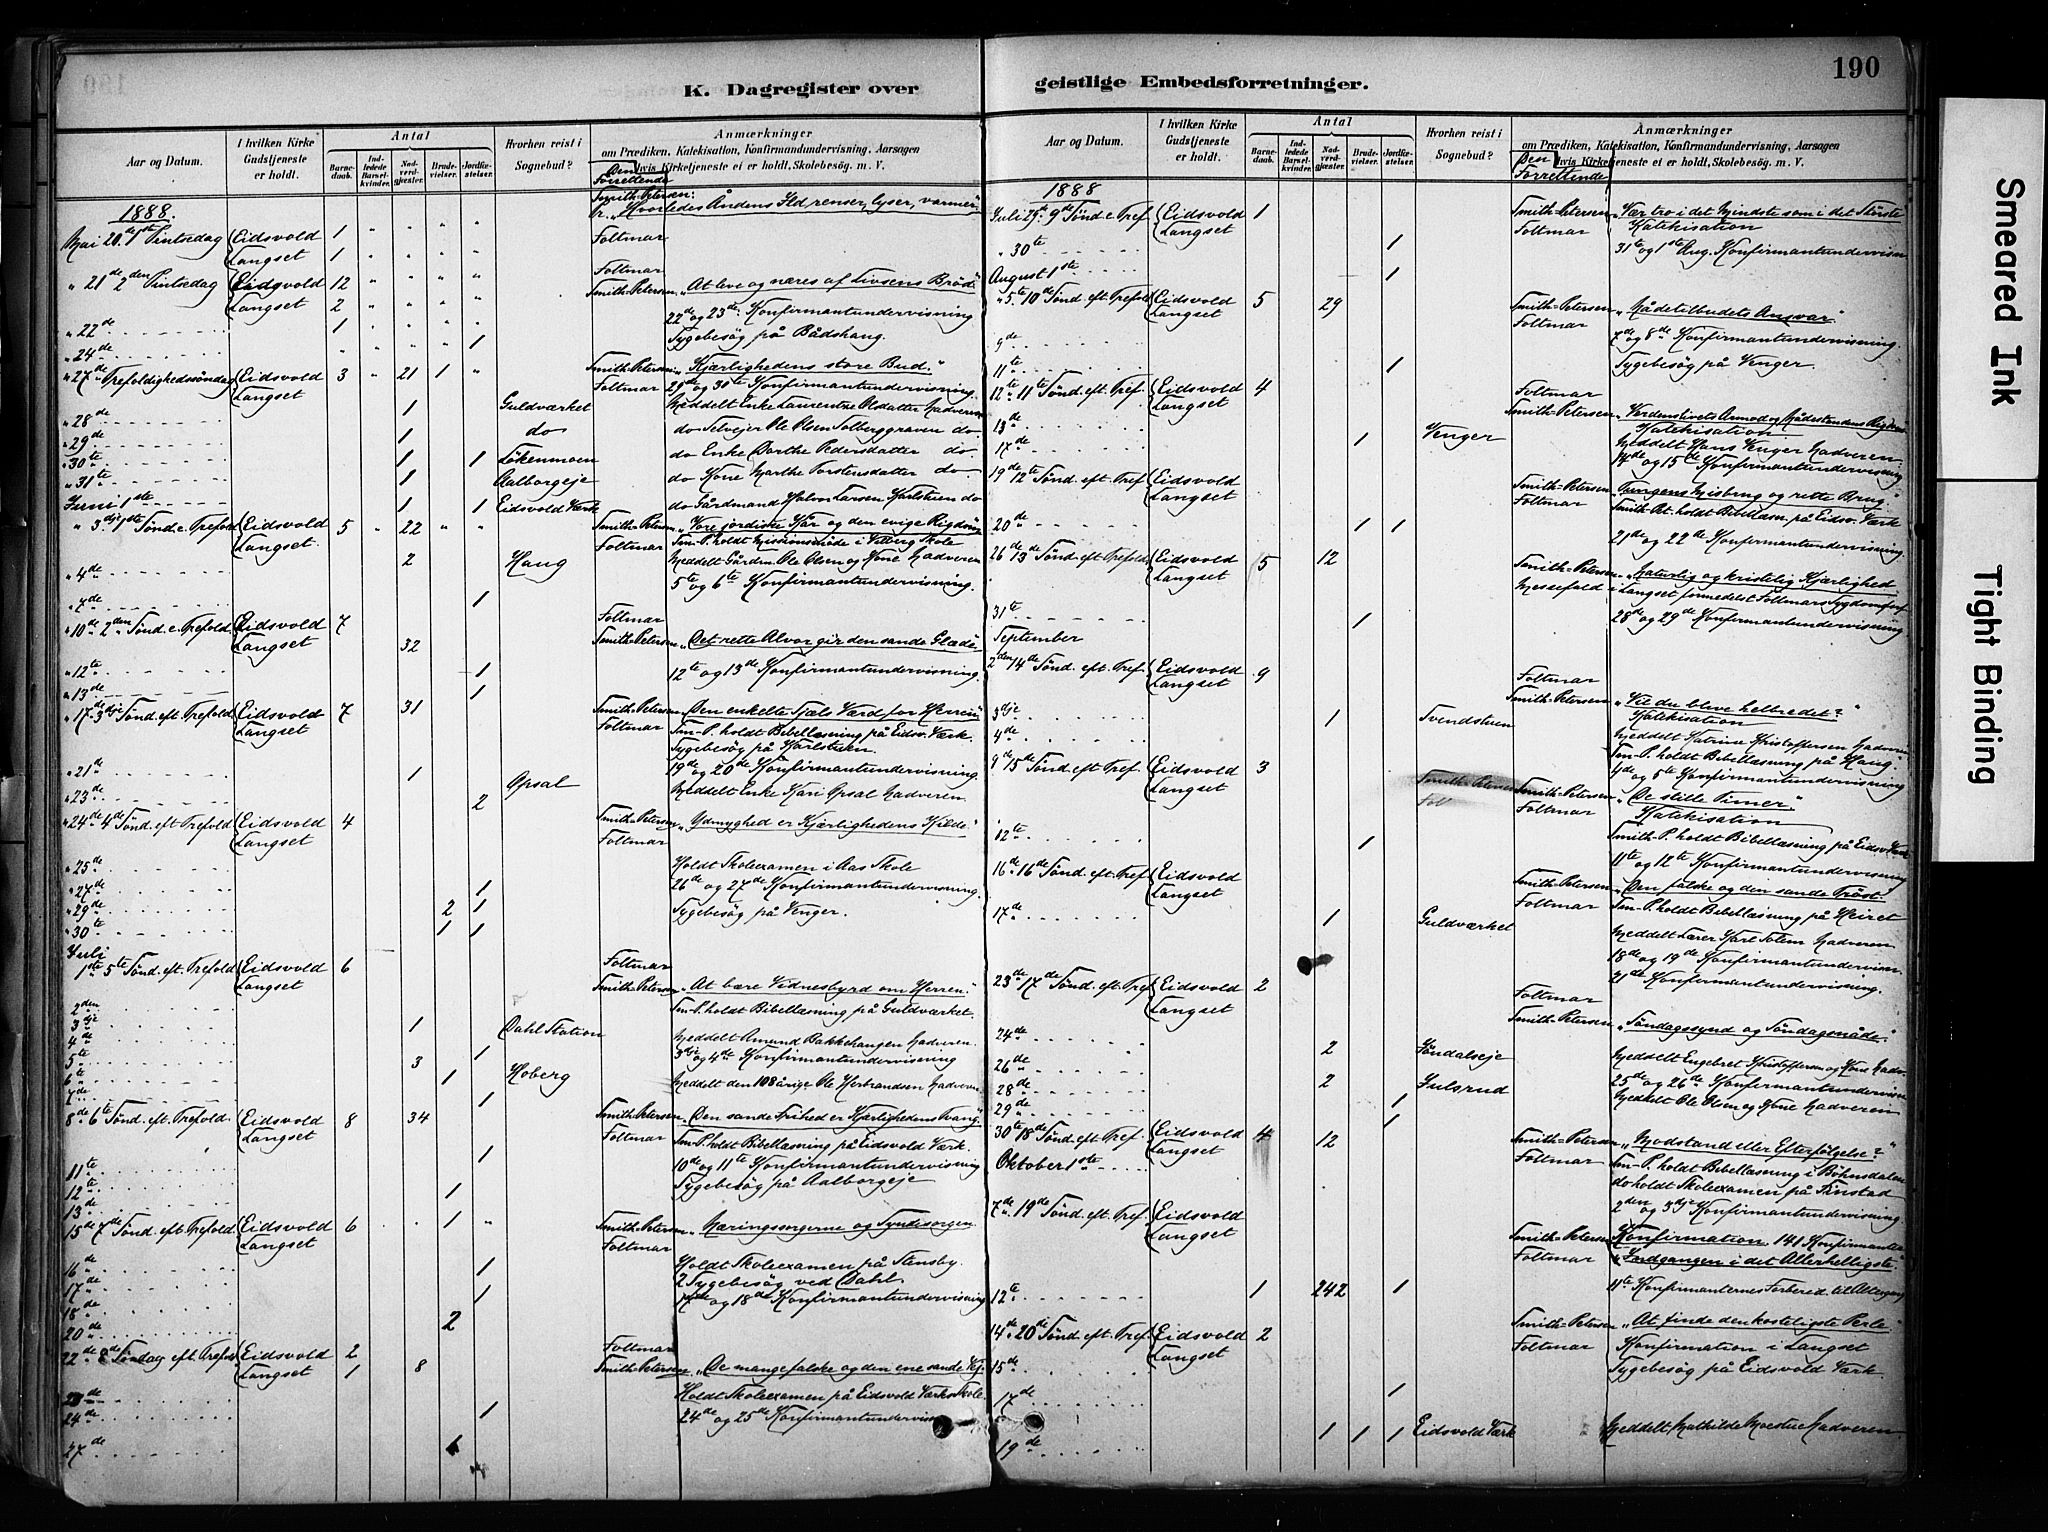 K. Dagregister over
Aar og Datum.
I hvilken Kirke Gudstjeneste er holdt.
Antal
Barnedaab.
Indledede Barselkvinder.
Nadverdgjæster.
Brudevielser.
Jordfæstelser.
Hvorhen reist i Sognebud?
Anmærkninger
om Prædiken, Katekisation, Konfirmandundervisning, Aarsagen hvis Kirketjeneste ei er holdt, Skolebesøg. m. V.
Den Forrettende
1888.
Smith-Petersen: "Hvorledes Åndens Ild renser, lyser, varmer"
Mai 20de 1ste Pintsedag Eidsvold 1
Langset 1 Foltmar
" 21de 2den Pintsedag Eidsvold 12 Foltmar
Langset 2 Smith-Petersen "At leve og næres af Livsens Brød"
" 22de 1 22de og 23de Konfirmantundervisning
" 24de 1 Sygebesög på Bådshaug.
" 27de Trefoldighedssöndag Eidsvold 3 " 21 1 " Smith-Petersen "Kjærlighedens store Bud."
Langset Foltmar 29de og 30te Konfirmantundervisning.
" 28de 1 Guldværket Meddelt Enke Laurentze Olsdatter Nadveren
" 29de 1 do do Selvejer Ole Olsen Solberggraven do.
" 30te 1 1 Lökenmoen do Enke Dorthe Pedersdatter do
" 31te 1 Aalborgeje do Kone Marthe Torstensdatter do
Juni 1ste 1 1 Eidsvold Værk do Gårdmand Halvor Larsen Karlstuen do
" 3dje 1ste Sönd. e. Trefold Eidsvold 5 " 22 " " Smith-Petersen "Vore jordiske Kår og den evige Rigdom"
Langset. Foltmar Sm-P. holdt Missionsmöde i Vilberg Skole
" 4de 2 Haug Meddelt Gårdm. Ole Olsen og Kone Nadveren
5te og 6te Konfirmantundervisning.
" 7de 1
" 10de 2den Sönd. e. Trefold Eidsvold 7 Foltmar
Langset 32 Smith-Petersen "Det rette Alvor gir den sande Glæde"
" 12te 1 12te og 13de Konfirmantundervisning.
" 13de 1
" 17de 3dje Sönd. eft. Trefold. Eidsvold 7 31 Smith-Petersen "Den enkelte Sjæls Værd for Herren"
Langset Foltmar Sm-P. holdt Bibellæsning på Eidsv. Værk.
Sygebesög på Karlstuen.
19de og 20de Konfirmantundervisning.
" 21de 1 Opsal Meddelt Enke Kari Opsal Nadveren.
" 23de 2
" 24de 4de Sönd. eft Trefold Eidsvold 4 Smith-Petersen "Ydmyghed er Kjærlighedens Kilde"
Langset Foltmar
" 25de Holdt Skoleexamen i Aas Skole
" 27de 1 26de og 27de Konfirmantundervisning.
" 29de 2 1 Sygebesög på Venger.
" 30te 1 1
Juli
1ste 5te Sönd. eft. Trefold. Eidsvold 6 Foltmar
Langset Smith-Petersen "At bære Vidnesbyrd om Herren"
2den Sm-P. holdt Bibellæsning på Guldværket.
3dje 1 Dahl Station Meddelt Amund Bakkehaugen Nadveren.
4de 1 3dje og 4de Konfirmantundervisning
5te 3 Hoberg Meddelt den 108 årige Ole Herbrandsen Nadveren
6te 1
7de 1
8de 6te Sönd. eft. Trefold. Eidsvold 8 34 Smith-Petersen "Den sande Frihed er Kjærlighedens Tvang"
Langset Foltmar Sm-P. holdt Bibellæsning på Eidsvold Værk.
11te 1 10de og 11te Konfirmantundervisning
12te Sygebesög på Aalborgeje
13de 1
15de 7de Sönd. eft. Trefold Eidsvold 6 1 " Smith-Petersen "Næringssorgerne og Syndesorgen
Langset Foltmar
16de 1 Holdt Skoleexamen på Stensby.
17de 1 2 Sygebesög ved Dahl.
18de 17de og 18de Konfirmantundervisning
20de 2
22de 8de Söndag eft. Trefold Eidsvold 2 Foltmar
Langset 1 8 Smith-Petersen "De mange falske og den ene sande Vej
23de Holdt Skoleexamen på Eidsvold Værks Skole.
24de 1 24de og 25de Konfirmantundervisn
27de 1
geistlige Embedsforretninger.
190
Aar og Datum.
I hvilken Kirke Gudstjeneste er holdt.
Antal
Barnedaab.
Indledede Barselkvinder.
Nadverdgjæster.
Brudevielser.
Jordfæstelser.
Hvorhen reist i Sognebud?
Anmærkninger
om Prædiken, Katekisation, Konfirmandundervisning, Aarsagen hvis Kirketjeneste ei er holdt, Skolebesøg. m. V.
Den Forrettende
1888
Juli 29de 9de Sönd e. Tref Eidsvold 1 Smith-Petersen "Vær tro i det Mindste som i det Störste
Langset Foltmar Katekisation
" 30te 1 31te og 1ste Aug. Konfirmantundervisn.
August 1ste 1
" 5te 10de Sönd eft Trefold Eidsvold 5 29 Smith-Petersen "Nådetilbudets Ansvar"
Langset Foltmar 7de og 8de Konfirmantundervisning.
9de Sygebesög på Venger.
11te 1
12te 11te Sönd eft. Tref. Eidsvold 4 Foltmar
Langset Smith-Petersen "Verdenslivets Armod og Nådestandens Rigdom
13de Katekisation
17de 1 Venger Meddelt Hans Venger Nadveren
14de og 15de Konfirmantundervisning
19de 12te Sönd. eft Tref Eidsvold Smith-Petersen "Tungens Misbrug og rette Brug."
Langset Foltmar Smith-Pet. holdt Bibellæsn. på Eidsv. Værk
20de 1 1 21de og 22de Konfirmantundervisning
26de 13de Sönd. eft Trefold Eidsvold 5 12 Smith-Petersen "Naturlig og kristelig Kjærlighed
Langset Messefald i Langset formedelst Foltmars Sygdomsforf
31te 1 28de og 29de Konfirmantundervisning
September
2den 14de Sönd. eft. Tref. Eidsvold 9 Foltmar
Langset Smith-Petersen "Vil du blive helbredet?"
3dje Katekisation
4de 1 Svendstuen Meddelt Katrine Kristoffersen Nadveren
Sm-P. holdt Bibellæsning på Haug
9de 15de Sönd eft Tref. Eidsvold 3 4de og 5te Konfirmantundervisning
Langset Smith-Petersen "De stille Timer."
Foltmar Katekisation
12te 1 Smith-P. holdt Bibellæsning på Eidsv. Værk
11te og 12te Konfirmantundervisning
16de 16de Sönd. eft Tref Eidsvold Smith-Petersen "Den falske og den sande Tröst.
Langset Foltmar Sm-P. holdt Bibellæsning på Heiret
17de 1 Guldværket Meddelt Lærer Karl Solem Nadveren
18de og 19de Konfirmantundervisn.
23de 17de Sönd eft. Tref Eidsvold 2 21de Konfirmantundervisning.
Langset Foltmar
Smith-Petersen "Söndagssynd og Söndagsnåde"
24de 2 Söndalseje Meddelt Engebret Kristoffersen og Kone Nadv.
26de 25de og 26de Konfirmantundervisn
28de 2 Julsrud Meddelt Ole Olsen og Kone Nadveren
29de 1
30te 18de Sönd eft Tref. Eidsvold 4 12 1 Smith-Petersen "Modstand eller Efterfölgelse?"
Langset Foltmar Sm-P. holdt Bibellæsning i Böhnsdalen
Oktober 1ste do holdt Skoleexamen på Finstad
2den og 3dje Konfirmantundervisning.
7de 19de Sönd. eft. Tref. Eidsvold Smith-Petersen Konfirmation. 141 Konfirmanter
Langset Foltmar "Indgangen i det Allerhelligste.
12te 1 242 1 11te Konfirmanternes Forbered. til Altergang
14de 20de Sönd. eft. Tref. Eidsvold 2 Smith-Petersen "At finde den kosteligste Perle"
Langset Foltmar Konfirmation i Langset
15de Sygebesög på Eidsvold Værk.
17de 1
19de 1 1 1 Eidsvold Værk Meddelt Mathilde Moestue Nadveren
Smeared Ink
Tight Binding